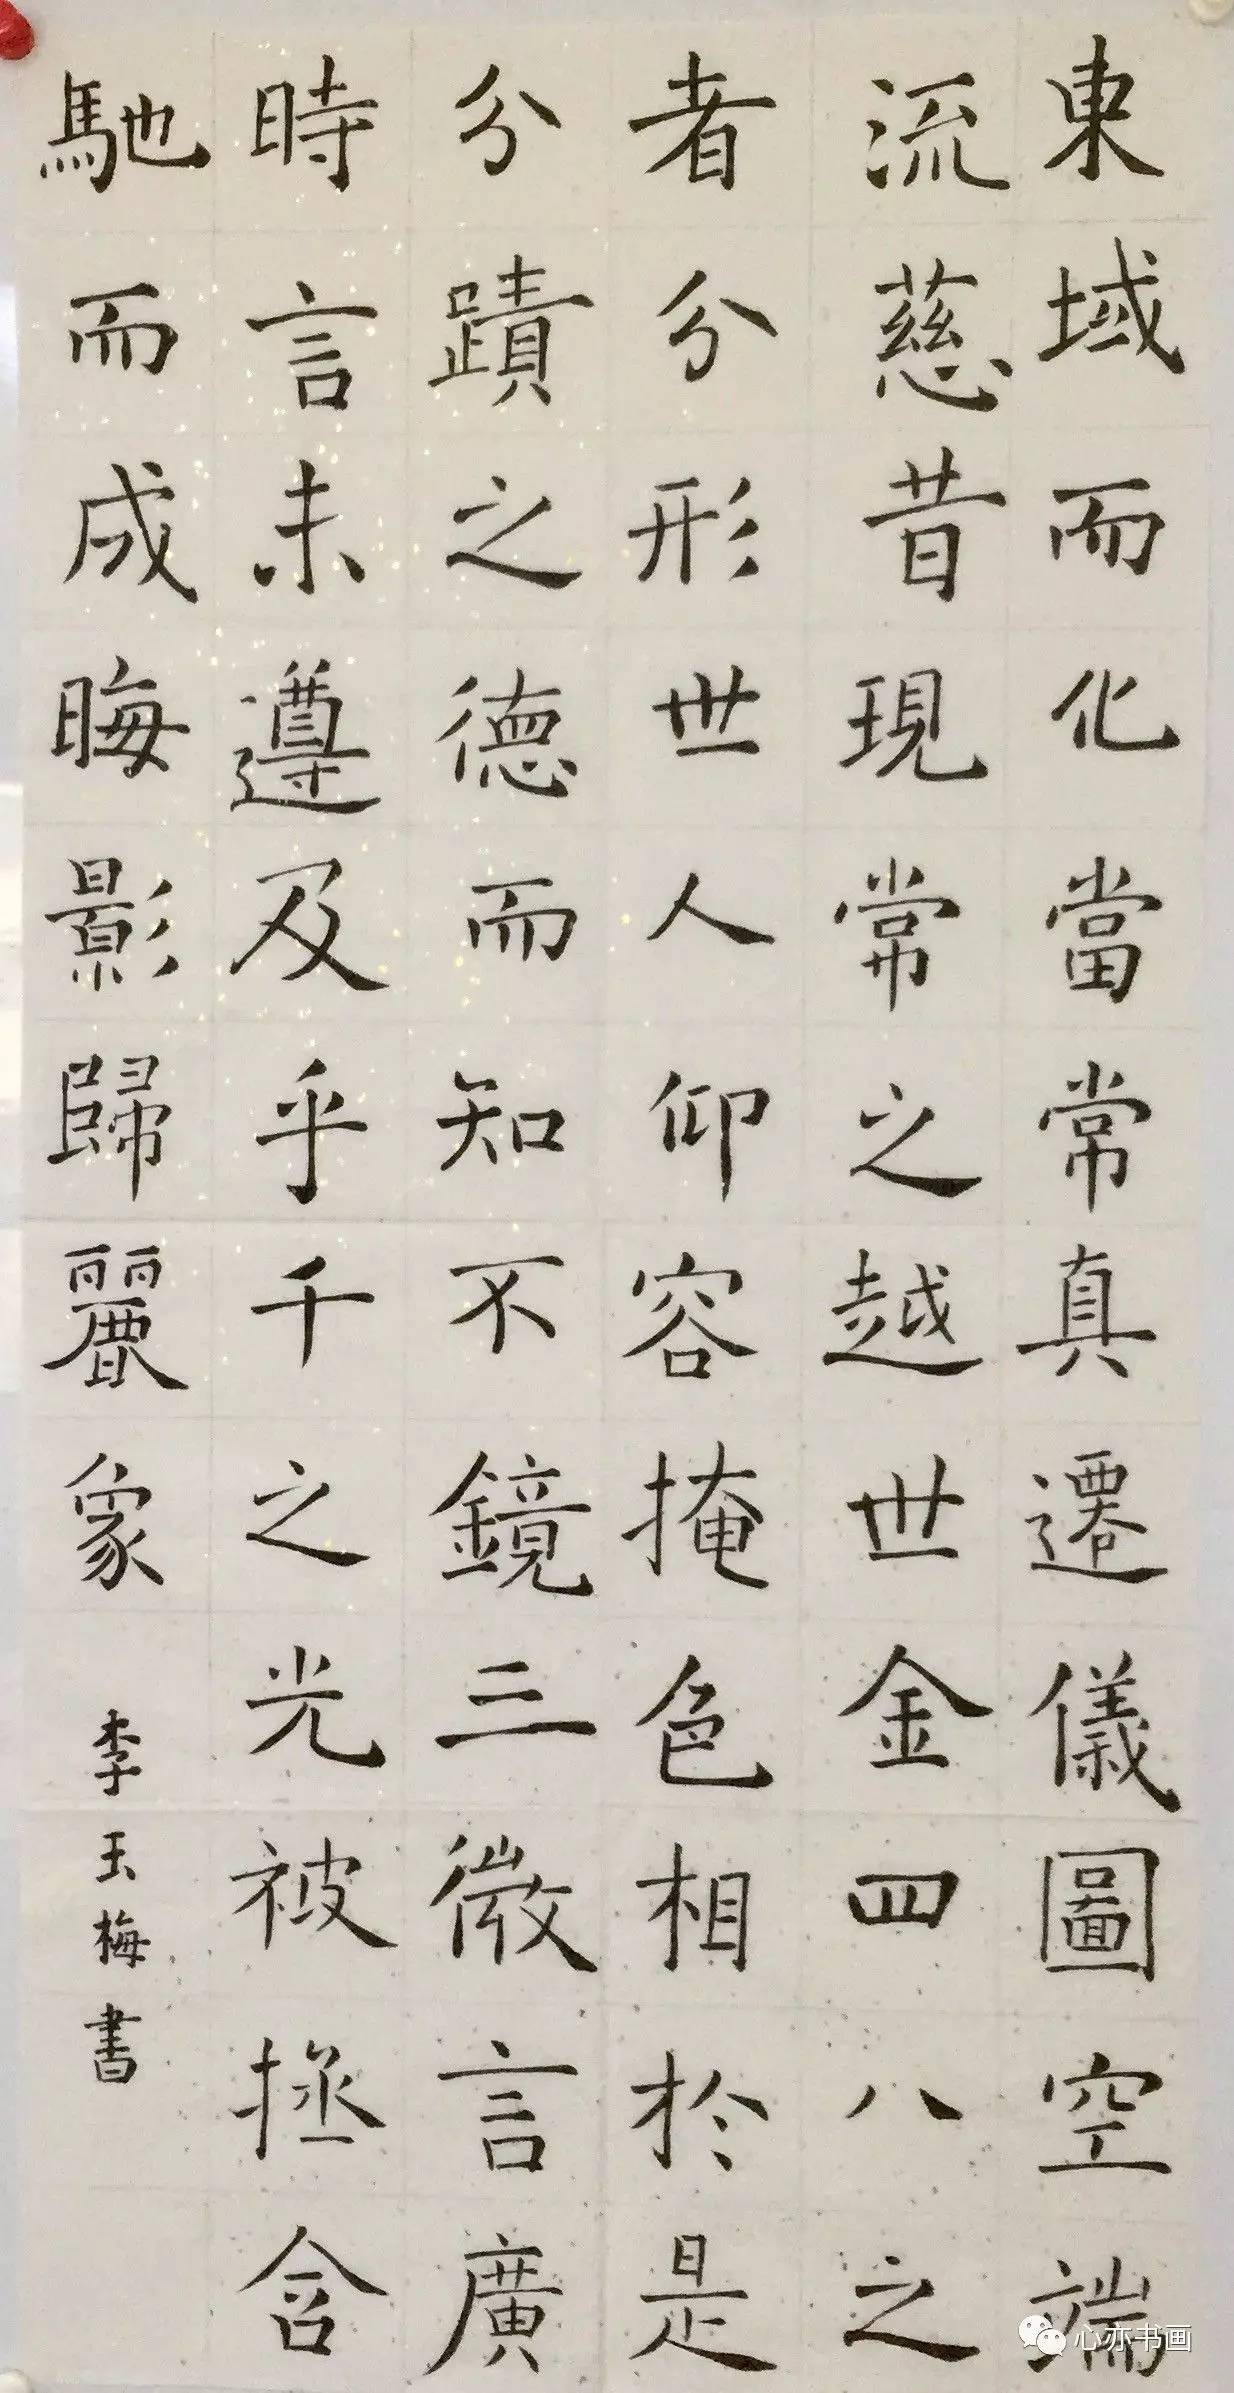 東域而化當常真遷儀圖空端
流慈昔現常之越世金四八之
者分形世人仰容掩色相於是
分蹟之德而知不鏡三微言廣
時言未遵及乎千之光被拯含
馳而成晦影歸麗象
李玉梅書
心亦书画